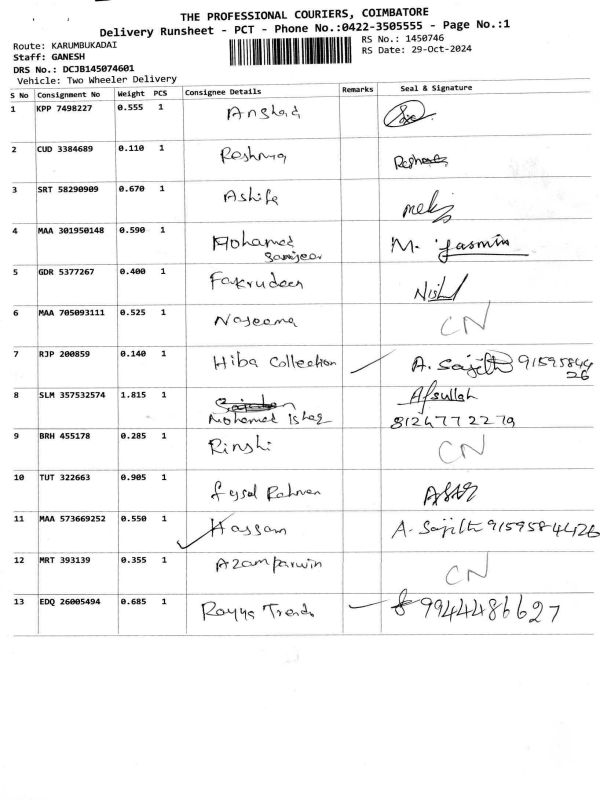 THE PROFESSIONAL COURIERS, COIMBATORE
Delivery Runsheet - PCT - Phone No.:0422-3505555 - Page No.:1
Route: KARUMBUKADAI
RS No.: 1450746
Staff: GANESH
RS Date: 29-Oct-2024
DRS No.: DCJB145074601
Vehicle: Two Wheeler Delivery
S No Consignment No Weight PCS Consignee Details Remarks Seal & Signature
1 KPP 7498227 0.555 1 Arshad
2 CUD 3384689 0.110 1 Reshma
3 SRT 58290909 0.670 1 Ashifa
4 MAA 301950148 0.590 1 Mohamed M. Jasmin
5 GDR 5377267 0.400 1 Fakrudeen
6 MAA 705093111 0.525 1 Naseema CN
7 RJP 200859 0.140 1 Hiba Collection A. Sajith 91595844
26
8 SLM 357532574 1.815 1 Afsullah
Mohamed Ishaq 8124772279
9 BRH 455178 0.285 1 Rinshi CN
10 TUT 322663 0.905 1 Fysal Rahman
11 MAA 573669252 0.550 1 Hassam A. Sajith 9159584426
12 MRT 393139 0.355 1 Azamparwin CN
13 EDQ 26005494 0.685 1 Rayya Trends 9944486627